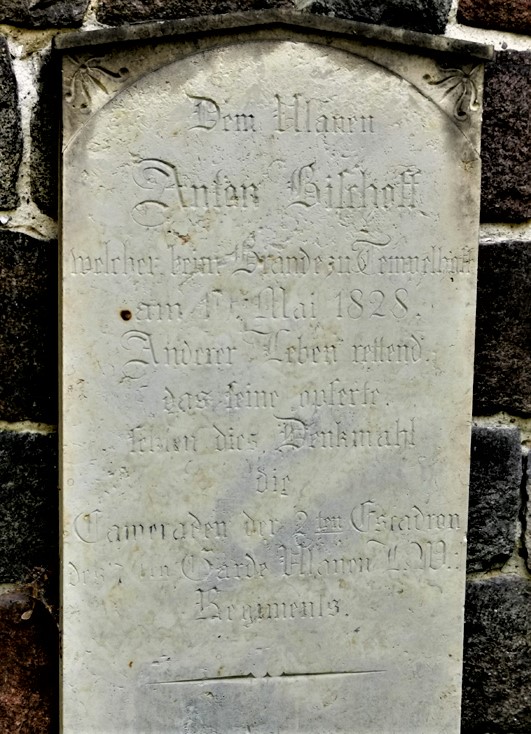 Dem Ullanen
Anton Bischoff
welcher beim Brande zu Tempelhoff
am Mai 1828.
Anderer Leben rettend,
das seine opferte.
setzen dies Denkmahl
die
Cameraden der 2ten Escadron
des ten Garde Ullanen L. W.
Regiments.